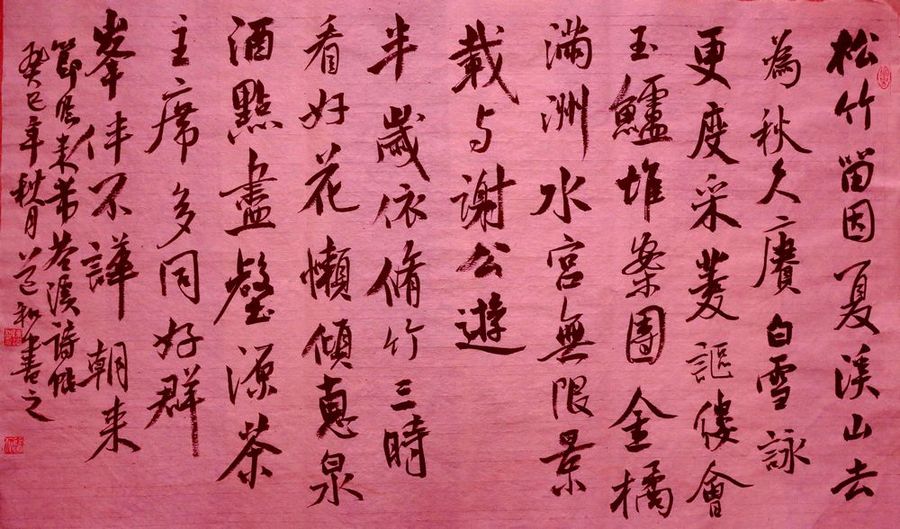 松竹留因夏溪山去
為秋久賡白雪詠
更度采菱謳縷會
玉鱸堆案團金橘
滿洲水宮無限景
載与謝公遊
半歲依脩竹三時
看好花懶傾惠泉
酒點盡壑源茶
主席多同好群
峯伴不譁朝来
節臨米芾苕溪詩帖
癸巳年秋月 書之